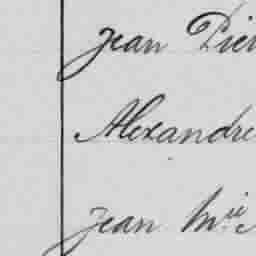 Jean Pier
Alexandre
Jean Mie